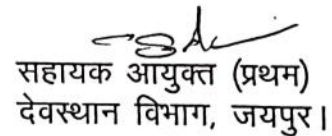 सहायक आयुक्त (प्रथम)
देवस्थान विभाग, जयपुर।